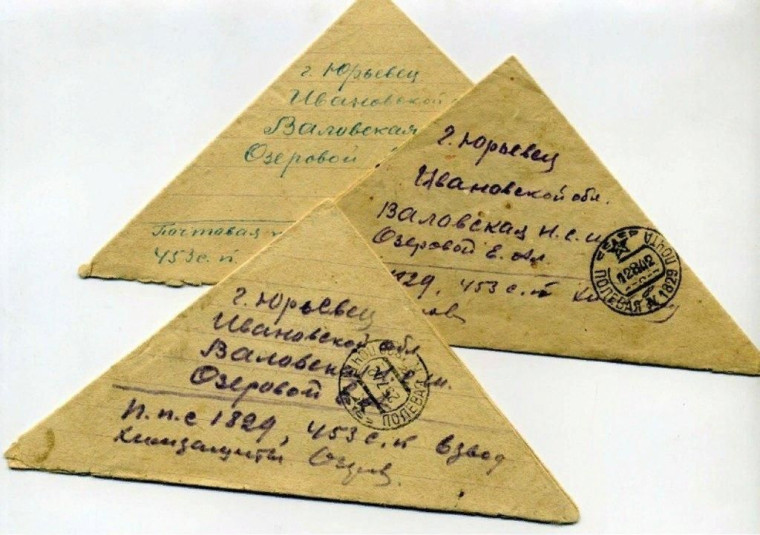 г. Юрьевец
Ивановской
Валовская
Озеровой
Почтовая
453 с. п
г. Юрьевец
Ивановской обл.
Валовская н. с. ш
Озеровой Е. Ал.
1829, 453 с. п
ПОЛЕВАЯ ПОЧТА
1829
г. Юрьевец
Ивановской обл
Валовская
Озеровой
П. п. с 1829, 453 с. п взвод
Химзащиты Озеров.
ПОЛЕВАЯ